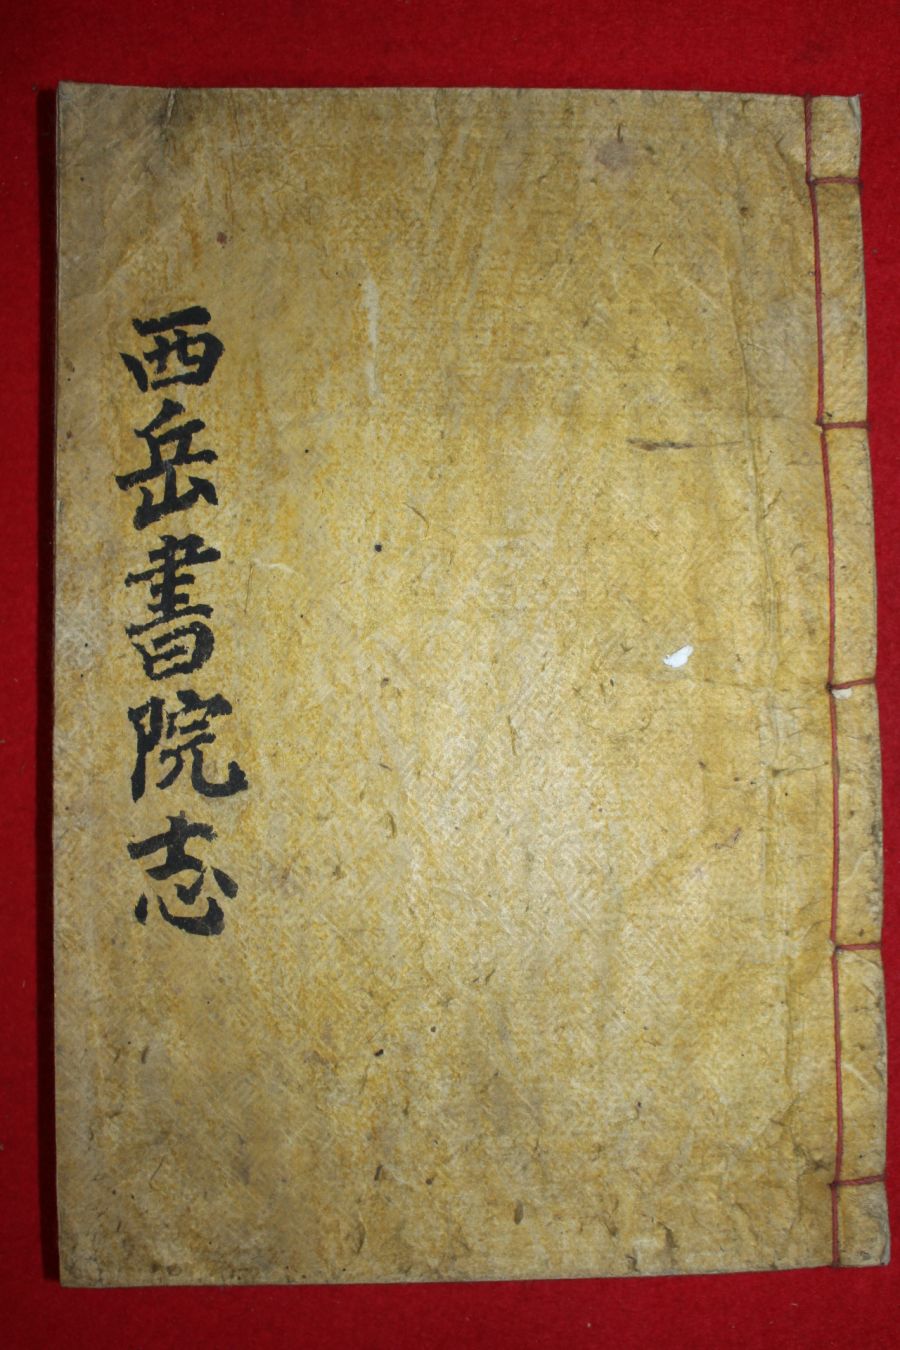 西岳書院志